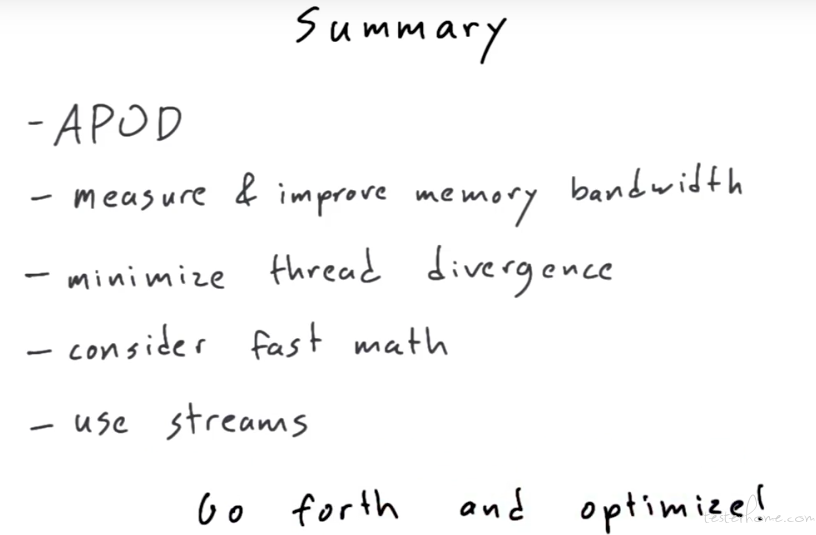 Summary
- APOD
- measure & improve memory bandwidth
- minimize thread divergence
- consider fast math
- use streams
Go forth and optimize!
testerhome.com